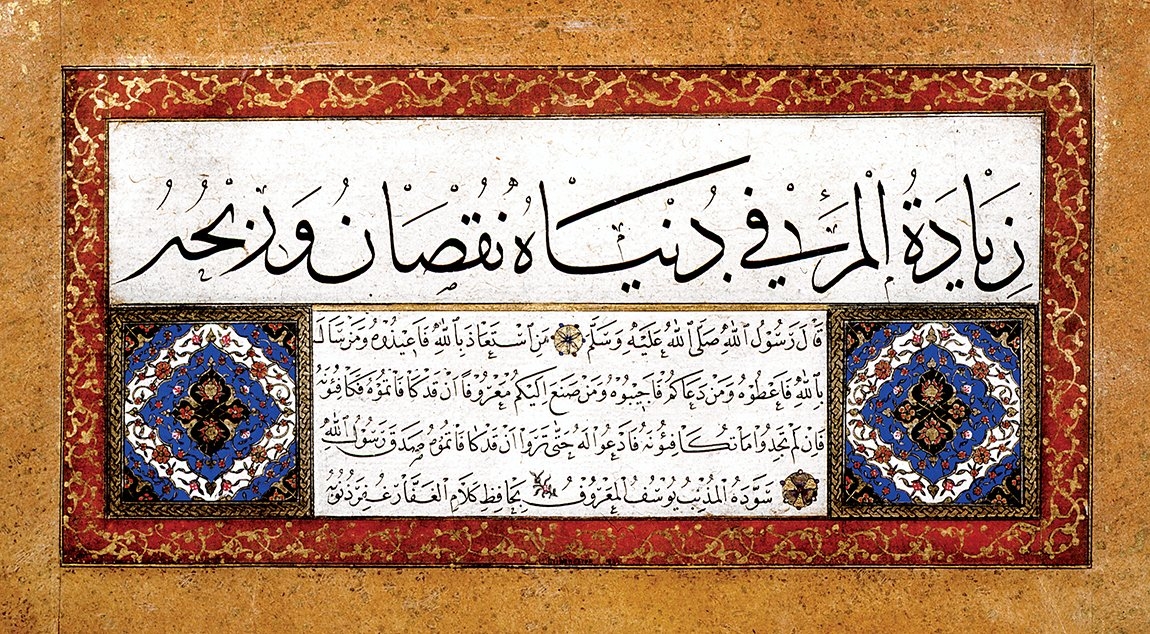 زِيَادَةُ الْمَرْءِ فِي دُنْيَاهُ نُقْصَانُ وَرِبْحُهُ
قَالَ رَسُولُ اللهِ صَلَّى اللهُ عَلَيْهِ وَسَلَّمَ مَنْ اسْتَعَاذَ بِاللهِ فَاَعِيذُوهُ وَمَنْ سَالَ
بِاللهِ فَاَعْطُوْهُ وَمَنْ دَعَاكُمْ فَاَجِيْبُوْهُ وَمَنْ صَنَعَ اِلَيْكُمْ مَعْرُوفًا اَنْ قَدْ كَافَاتُمُوْهُ فَكَافِئُوْهُ
فَاِنْ لَمْ تَجِدُوا مَا تُكَافِئُونَهُ فَادْعُوا لَهُ حَتَّى تَرَوْا اَنْ قَدْ كَافَاتُمُوْهُ صَدَقَ رَسُولُ اللهِ
سَوَّدَهُ الْمُذْنِبُ يُوسُفُ الْمَعْرُوفُ بِحَافِظِ كَلَامِ الْغَفَّارِ غُفِرَ ذُنُوبُهُ